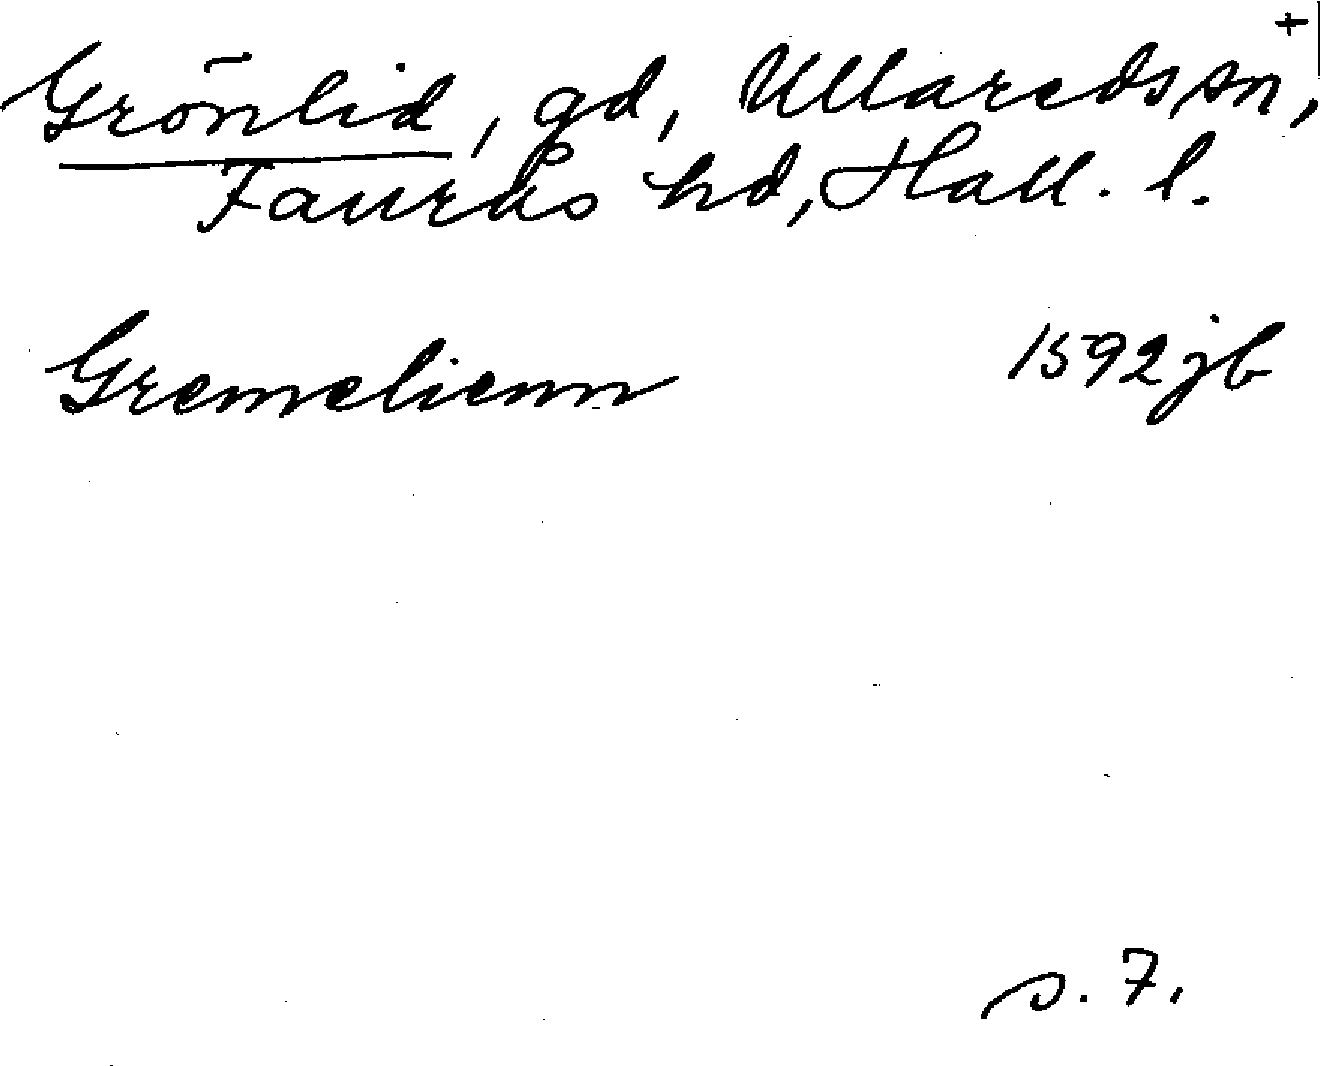 +
Grönlid, gd, Ullareds sn,
Faurås hd, Hall. l.
Gremelienn 1592 jb
s. 7.